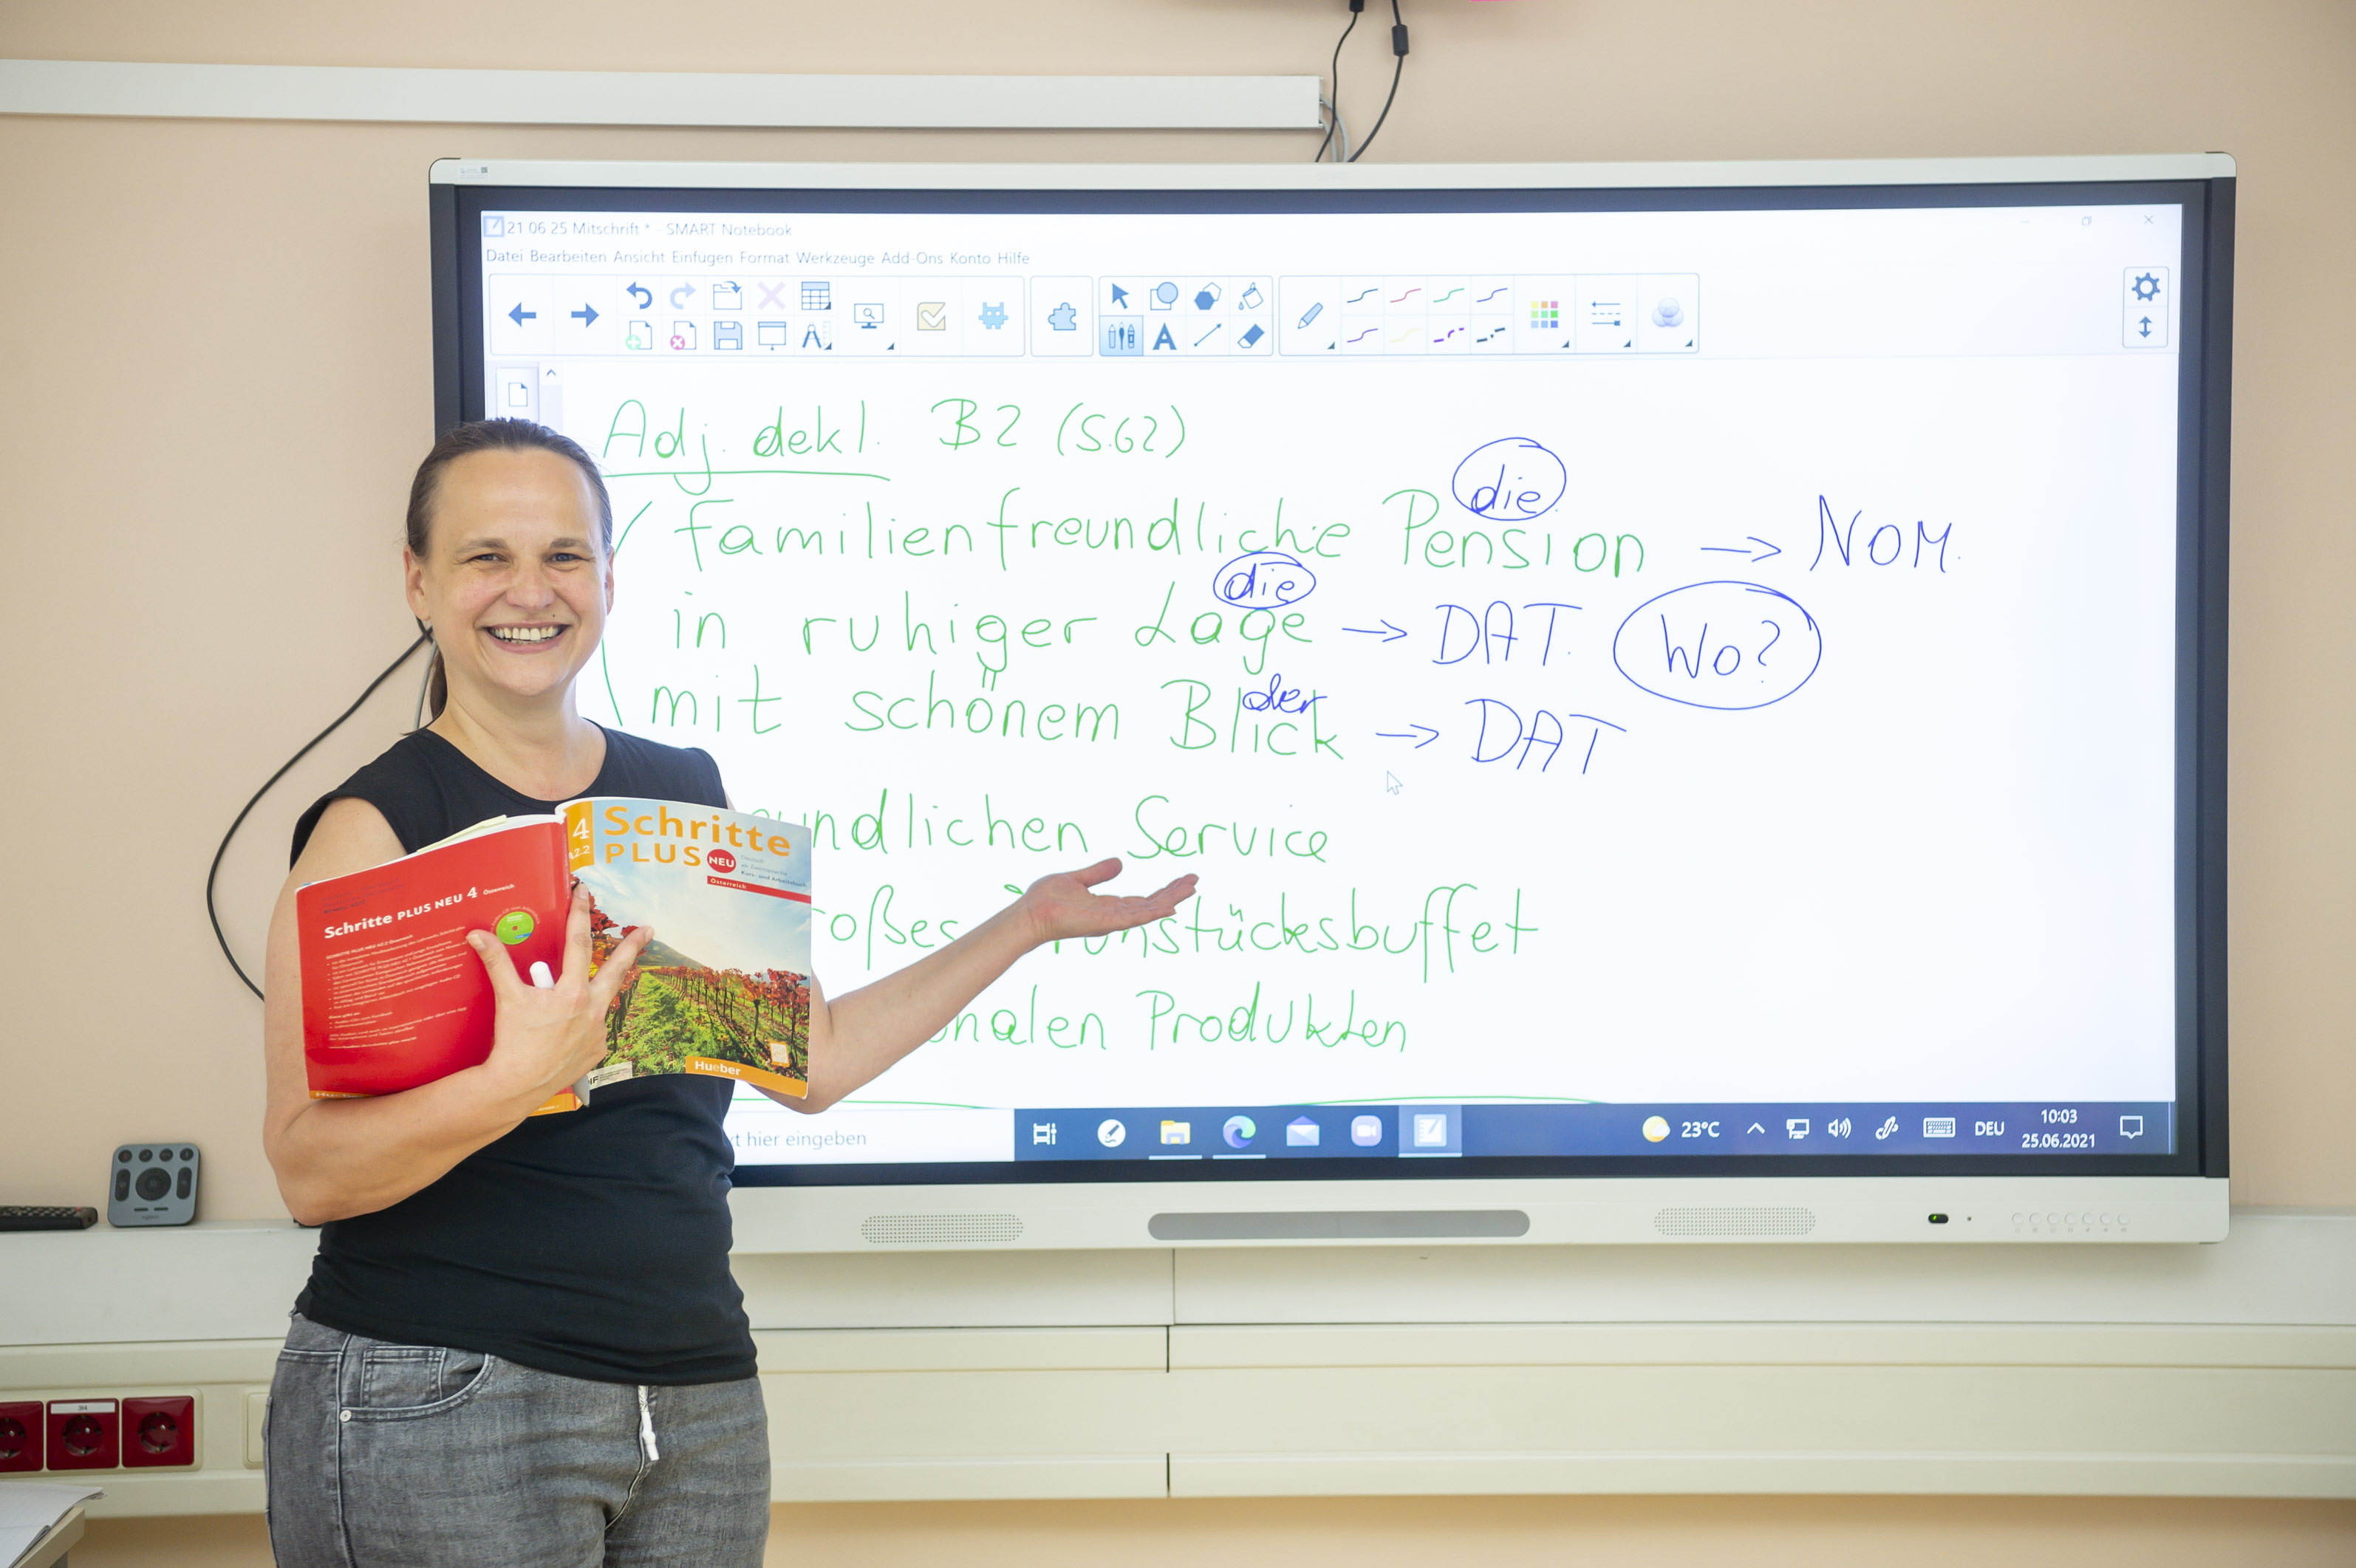 21 06 25 Mitschrift * - SMART Notebook
Datei Bearbeiten Ansicht Einfügen Format Werkzeuge Add-Ons Konto Hilfe
Adj. dekl. B2 (S.62)
die
familienfreundliche Pension → NOM.
die
in ruhiger Lage → DAT. Wo?
der
mit schönem Blick → DAT
undlichen Service
oßes stücksbuffet
nalen Produkten
hier eingeben
23°C
DEU
10:03
25.06.2021
4
A2.2
Schritte
PLUS
NEU
Deutsch
als Zweitsprache
Kurs- und Arbeitsbuch
Österreich
Hueber
Schritte PLUS NEU 4 Österreich